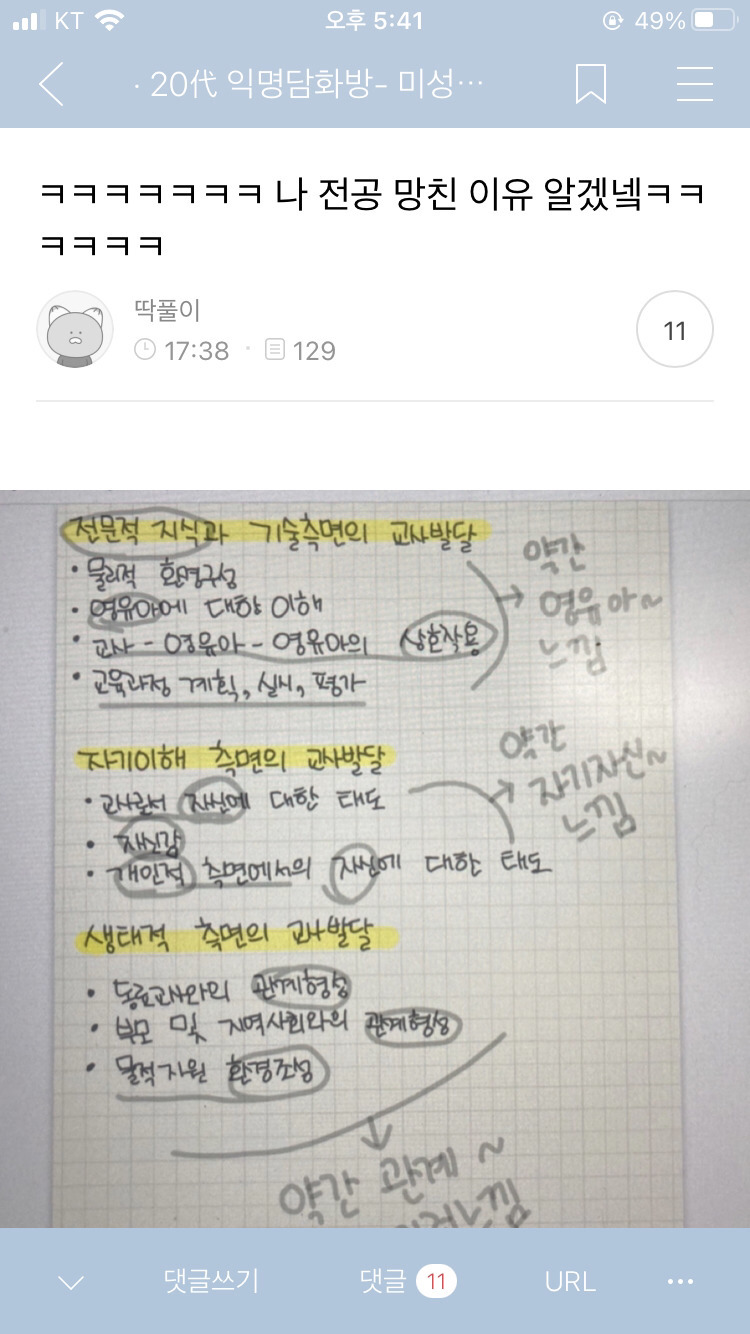 KT 오후 5:41 49%
· 20代 익명담화방- 미성···
ㅋㅋㅋㅋㅋㅋㅋ 나 전공 망친 이유 알겠넼ㅋㅋ
ㅋㅋㅋㅋ
딱풀이
17:38 · 129
11
전문적 지식과 기술측면의 교사발달
• 물리적 환경구성
• 영유아에 대한 이해
• 교사 - 영유아 - 영유아의 상호작용
• 교육과정 계획, 실시, 평가
약간
영유아~
느낌
자기이해 측면의 교사발달
• 교사로서 자신에 대한 태도
• 자신감
• 개인적 측면에서의 자신에 대한 태도
약간
자기자신~
느낌
생태적 측면의 교사발달
• 동료교사와의 관계형성
• 부모 및 지역사회와의 관계형성
• 물적자원 환경조성
약간 관계~
느낌
댓글쓰기 댓글 11 URL ···